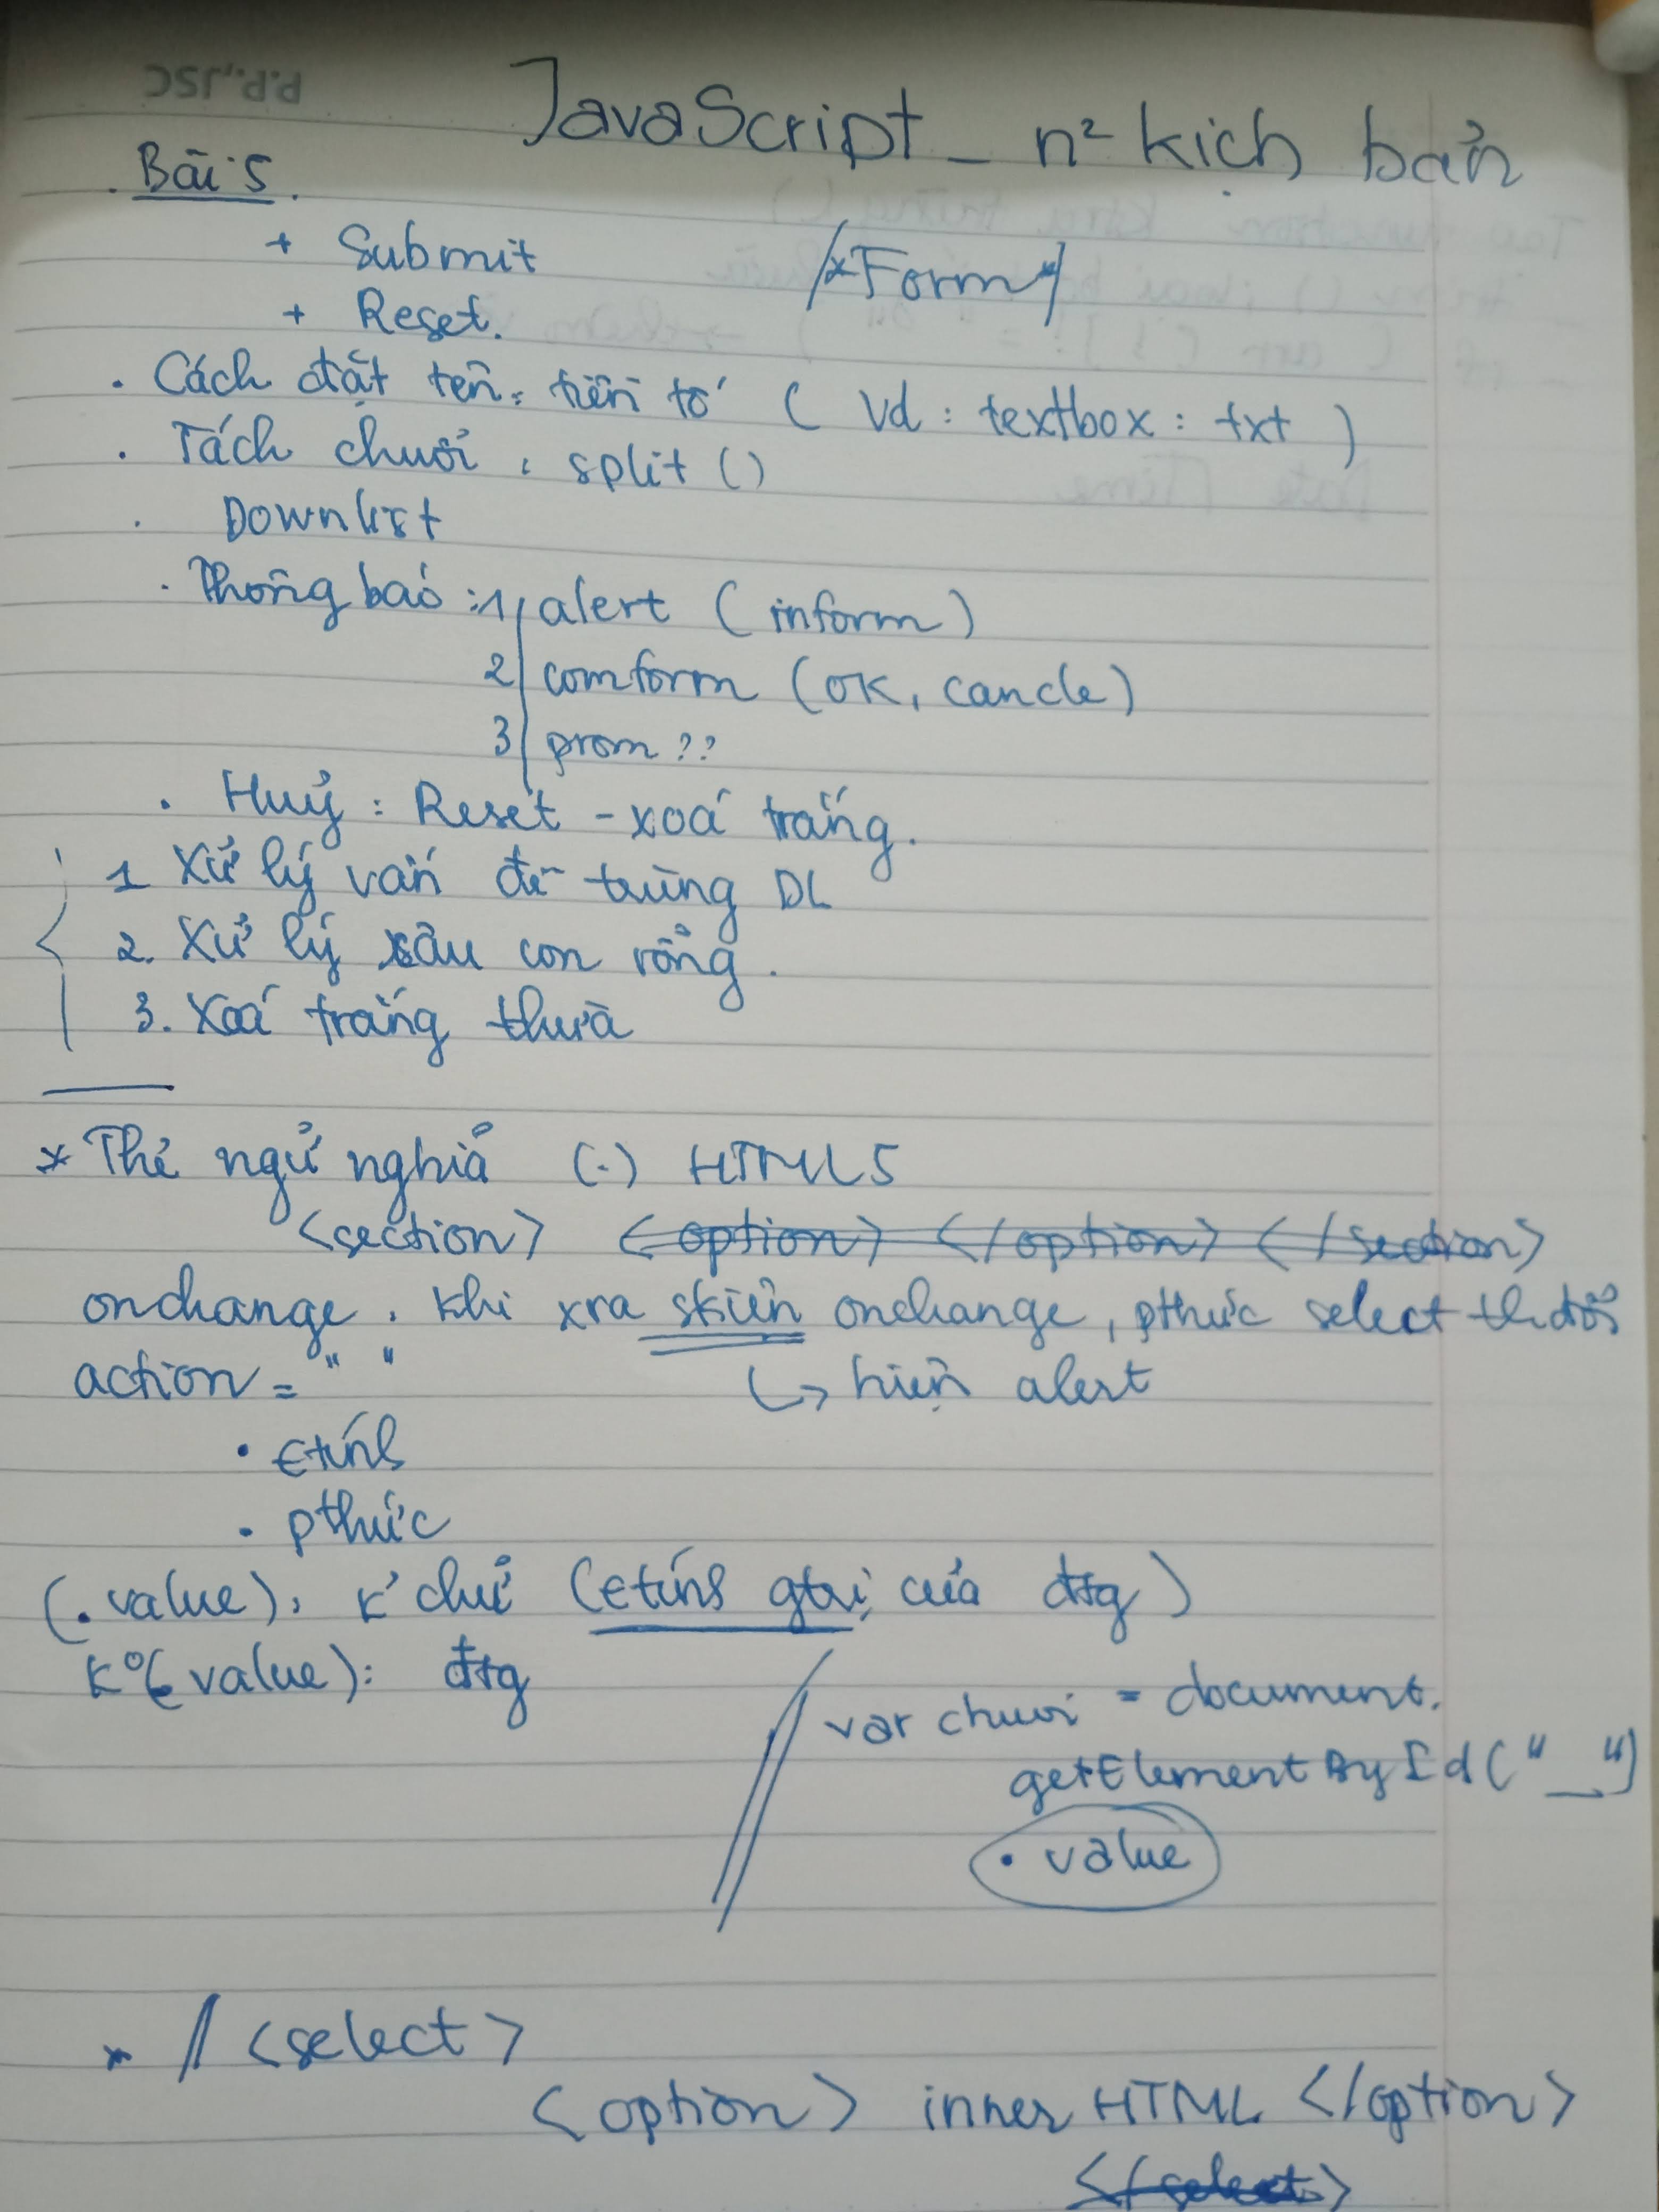 P.P.,JSC
JavaScript - n² kịch bản
. Bài 5.
+ Submit
/*Form*/
+ Reset.
. Cách đặt tên: tiền tố ( Vd : textbox : txt )
. Tách chuỗi : split ()
. Downlist
. Thông báo : 1, alert ( inform )
2 comform (OK, cancle)
3 prom ??
. Huỷ : Reset - xoá trắng.
1 Xử lý vấn đề trùng DL
2. Xử lý xâu con rỗng.
3. Xoá trắng thừa
* Thẻ ngữ nghĩa (.) HTML5
<section> <option> </option> </section>
onchange : khi xra skiện onchange, pthức select thđổi
action = " "
↳ hiện alert
• €tính
• pthức
(.value): k' chứ (€tính gtrị của đtg)
K° (. value): đtg
var chuoi = document.
getElementById("__")
. value
* // <select>
<option> inner HTML </option>
</select>